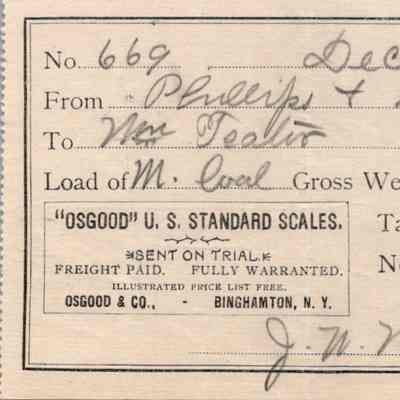 No. 669 Dec
From Phillips +
To Wm Teator
Load of M. Coal Gross We
"OSGOOD" U. S. STANDARD SCALES. Ta
SENT ON TRIAL. N
FREIGHT PAID. FULLY WARRANTED.
ILLUSTRATED PRICE LIST FREE.
OSGOOD & CO., - BINGHAMTON, N. Y.
J. W.